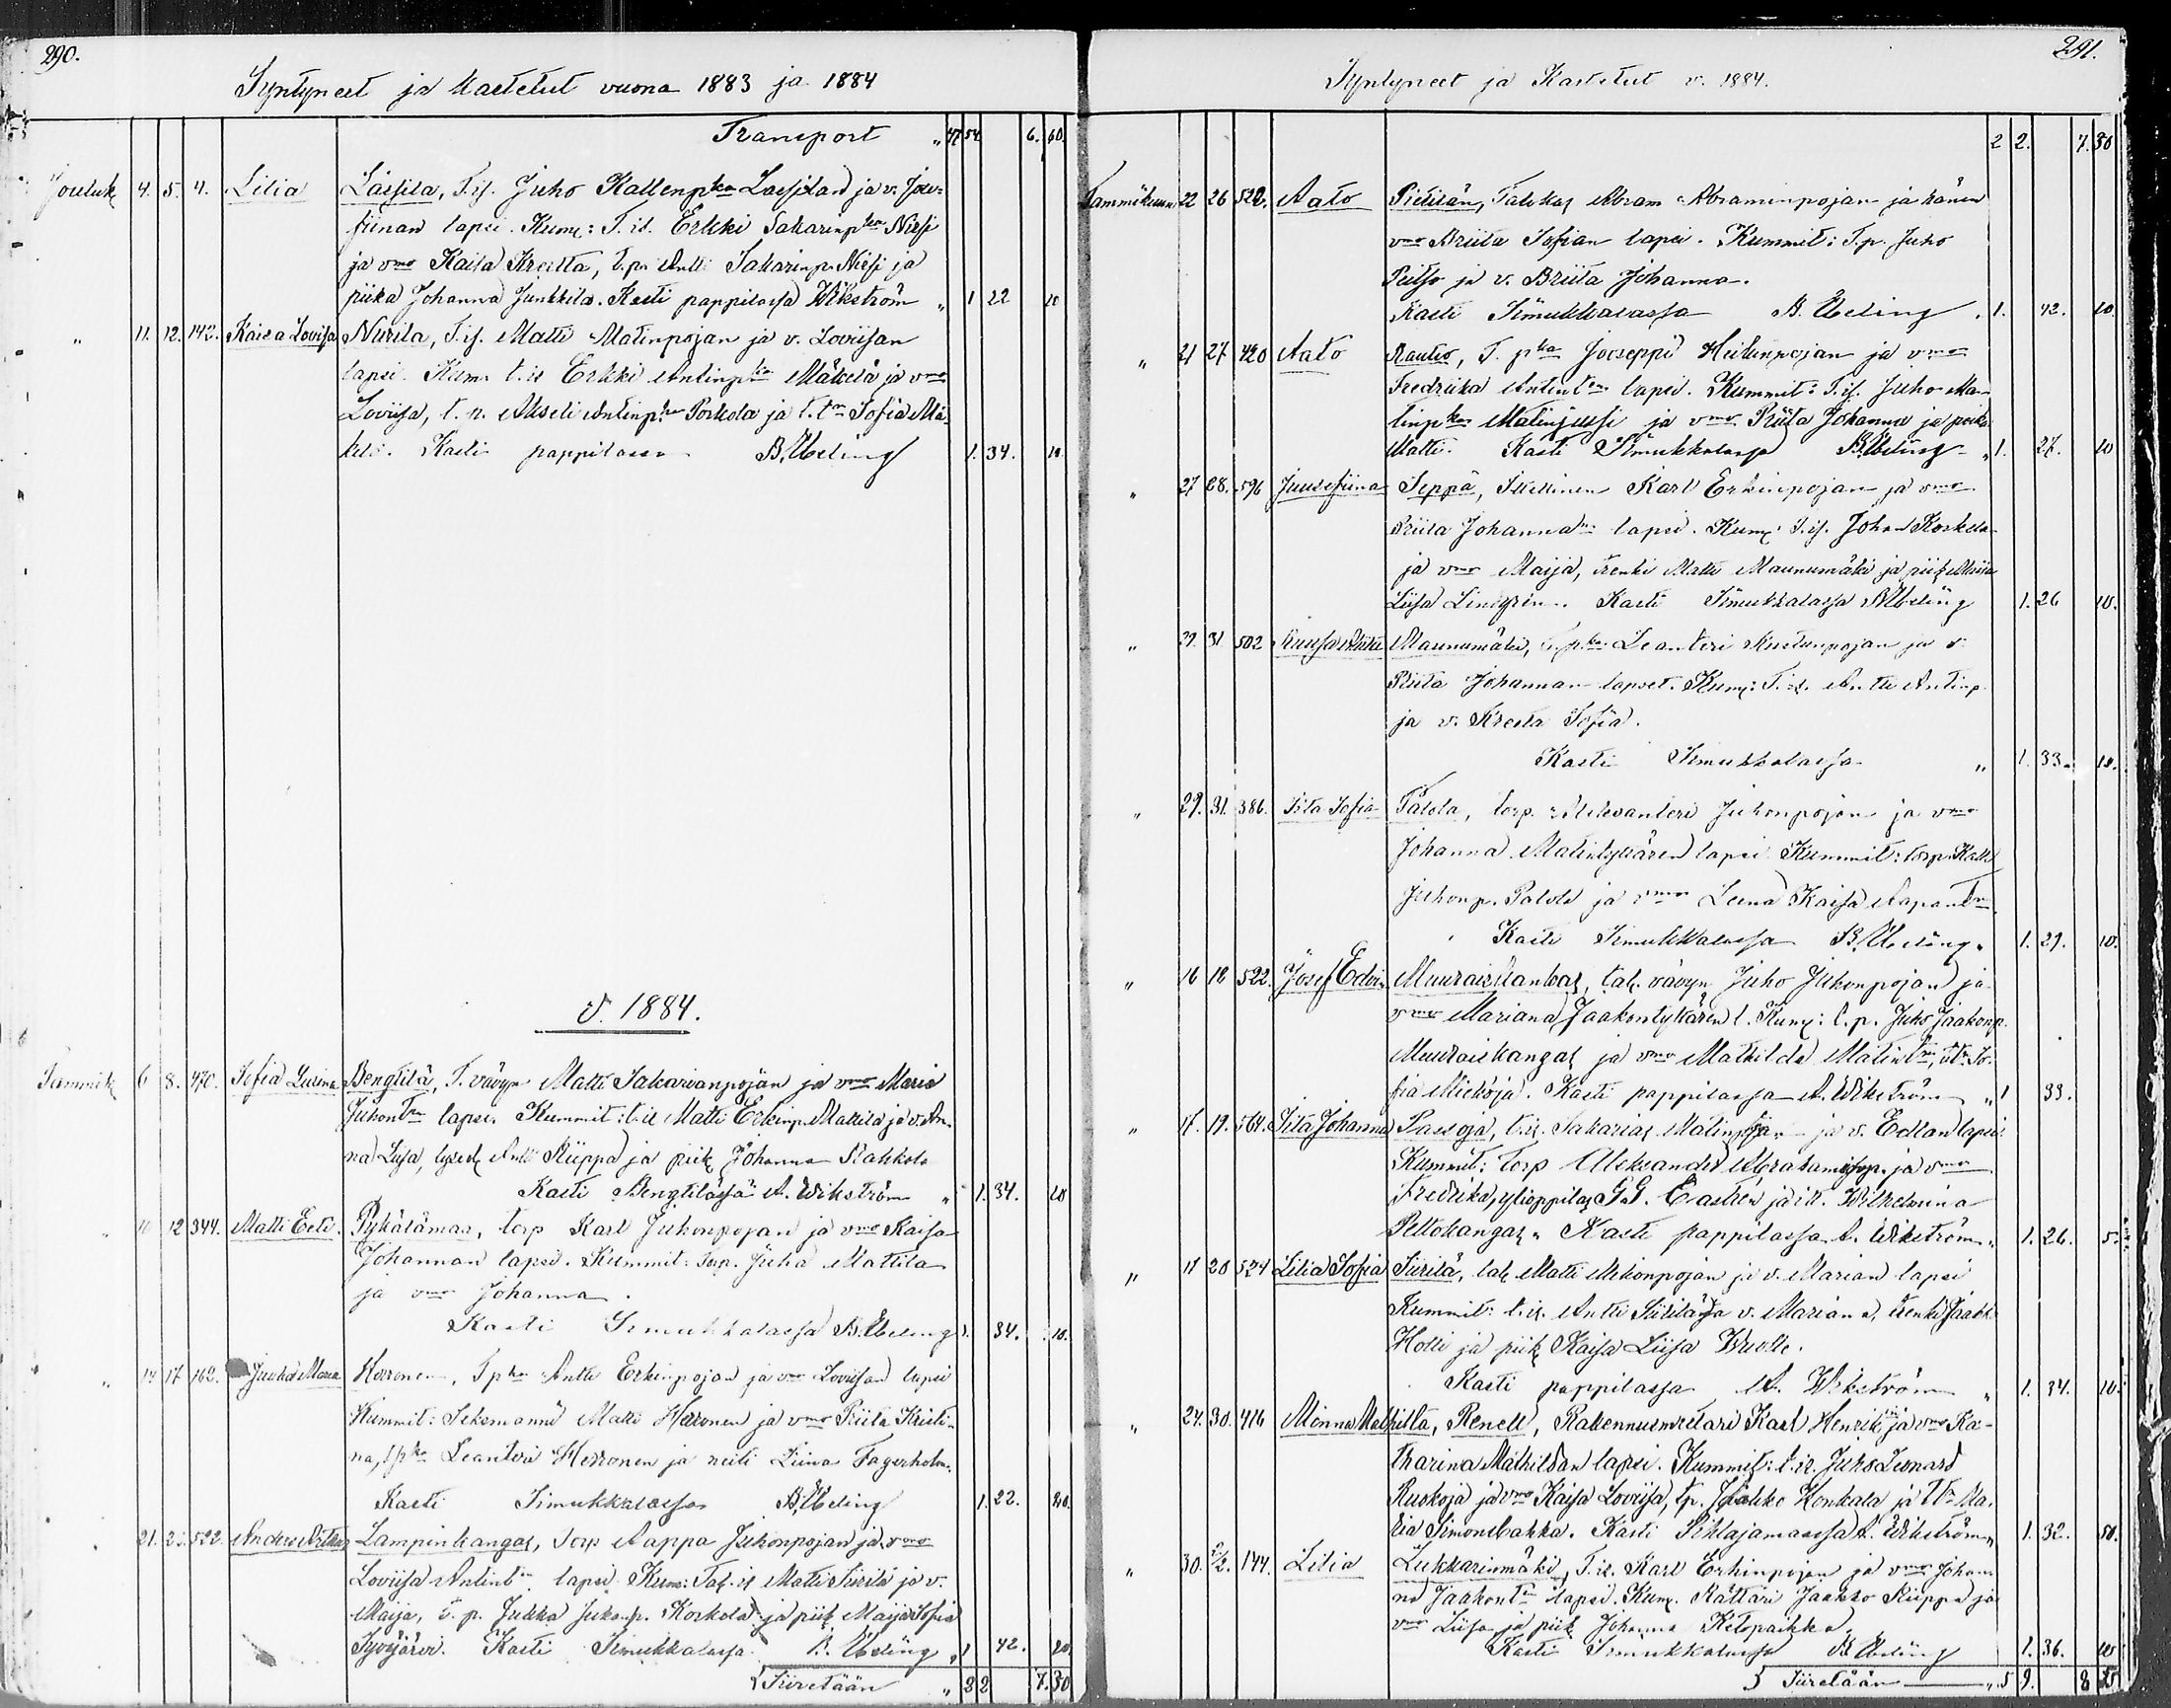 290.
Syntyneet ja Kastetut vuona 1883 ja 1884
Transport " 47 54 6. 60.
Jouluk 4. 5. 4. Lilia Lassila, T. is. Juho Kallenpka Lassilan ja v. Jose-
fiinan lapsi. Kum: T. is. Erkki Sakarinpka Niesi
ja vmo Kaisa Kreetta, t.pa Antti Sakarinp. Niesi ja
piika Johanna Junkkila. Kasti pappilassa Wikström " 1 22 10
" 11. 12. 142. Kaisa Lovisa Nurila, T. is. Matti Matinpojan ja v. Loviisan
lapsi. Kum. t. is Erkki Antinpka Mäkelä ja vmo
Loviisa, t. p. Akseli Antinpka Porkola ja t. tr Sofia Mä-
kelä. Kasti pappilassa B. Ubeling 1. 34. 10.
v. 1884.
Tammik 6 8. 470. Sofia Bengtilä, T. vävyn Matti Sakarianpojan ja vmo Maria
Juhontr lapsi. Kummit: t. is Matti Erkinp. Mattila ja v. An-
na Liisa, Antti Riippa ja piik Johanna Rahkola
Kasti Bengtilässä A. Wikström " 1. 34. 10
" 10 12 344. Matti Eeti. Pyhälämaa, torp Karl Juhonpojan ja vmo Kaisa
Johannan lapsi. Kummit: torp. Juha Mattila
ja vmo Johanna.
Kasti Simukkalassa B. Ubeling 1. 34. 10.
" 14 17 162. Juuho Herronen, T pka Antti Erkinpojan ja vmo Loviisan lapsi
Kummit: Matti Herronen ja vmo Priita Kristi-
na, t pka Leanteri Herronen ja neiti Liina Fagerholm.
Kasti Simukkalassa B. Ubeling 1. 22. 20.
21. 522. Anders Artthur Lampinkangas, torp Aappa Juhonpojan ja vmo
Loviisa Antint. lapsi. Kum: Tal. is Matti Siirilä ja v.
Maija, t. p. Jukka Juhonp. Korkela ja piik Maija Sofia
Syväjärvi. Kasti Simukkalassa B. Ubeling " 1 42. 20.
Siiretään " 2 2 7. 30
291.
Syntyneet ja Kastetut v. 1884.
2 2. 7. 30
Tammikuun 22 26 522. Aato Pietilän, Talokas Abram Abraminpojan ja hänen
vmo Briita Sofian lapsi. Kummit: T. p. Juho
ja v. Briita Johanna.
Kasti Simukkalassa B. Ubeling. 1. 42. 10.
" 21 27 420 Aato Rautio, T. pka Jooseppi Heikinpojan ja vmo
Fredrika Antintr lapsi. Kummit: T. is. Juho Ma-
tinpka Matinjussi ja vmo Priita Johanna ja poika
Matti. Kasti Simukkalassa B. Ubeling " 1. 27. 10
" 27 28. 596 Juusefiina Seppä, Itsellinen Karl Erkinpojan ja vmo
Briita Johannan lapsi. Kum: T. is. Johan Korkela
ja vmo Maija, Renki Matti Maunumäki ja piik Maija
Liisa Lindgren. Kasti Simukkalassa B. Ubeling 1. 26 10.
" 29. 31 502 Maunumäki, t. pka Leanteri Kustunpojan ja v.
Priita Johannan lapset. Kum: T. is. Antti Antinp.
ja v. Kreeta Sofia.
Kasti Simukkalassa " 1. 33. 10.
" 29. 31. 386. Iita Sofia Talola, torp. Aleksanteri Juhonpojan ja vmo
Johanna Matintyttären lapsi. Kummit: torp. Kalle
Juhonp. Palola ja vmo Leena Kaisa Aapontr
Kasti Simukkalassa B. Ubeling. 1. 29. 10.
" 16 18 522. Josef Edvin Muuraiskankas, tal. vävyn Juho Juhonpojan ja
vmo Mariana Jaakontyttären l. Kum: t. p. Juho Jaakonp.
Muuraiskangas ja vmo Mathilda Matintr, t. tr So-
fia Mickoja. Kasti pappilassa A. Wikström " 1 33.
" 17. 19. 564. Iita Johanna Passoja, t. is. Sakarias Matinpojan ja v. Edlan lapsi.
Kummit: torp Aleksander Abrahaminp. ja vmo
Fredrika, ylioppilas G. G. Castrén ja Wilhelmina
Peltokangas. Kasti pappilassa A. Wikström " 1. 26. 5.
" 18 20 524 Lilia Sofia Siirilä, tal. Matti Mikonpojan ja v. Marian lapsi
Kummit: t. is. Antti Siirilä ja v. Mariana, renki Jaakk.
Hotti ja piik Kaisa Liisa Wuolle.
Kasti pappilassa A. Wikström " 1. 34. 10.
" 24. 30. 416 Minna Mathilta, Renell, Rakennusmestari Karl Henrik ja vmo Ka-
tharina Mathildan lapsi. Kummit: t. is. Juho Leonard
Ruokoja ja vmo Kaisa Loviisa, tp. Jaakko Honkala ja t. tr Ma-
ria Simonlahka. Kasti Pihlajamaassa A. Wikström " 1. 32. 50.
" 30. 2/2. 144. Lilia Liikkarinmäki, T. is. Karl Erkinpojan ja vmo Johan-
na Jaakontr lapsi. Kum. Räätäri Jaakko Riippa ja
vmo Liisa ja piik Johanna Ketopaikka.
Kasti Simukkalassa B. Ubeling 1. 36. 10
Siiretään " 5 9. 8 35